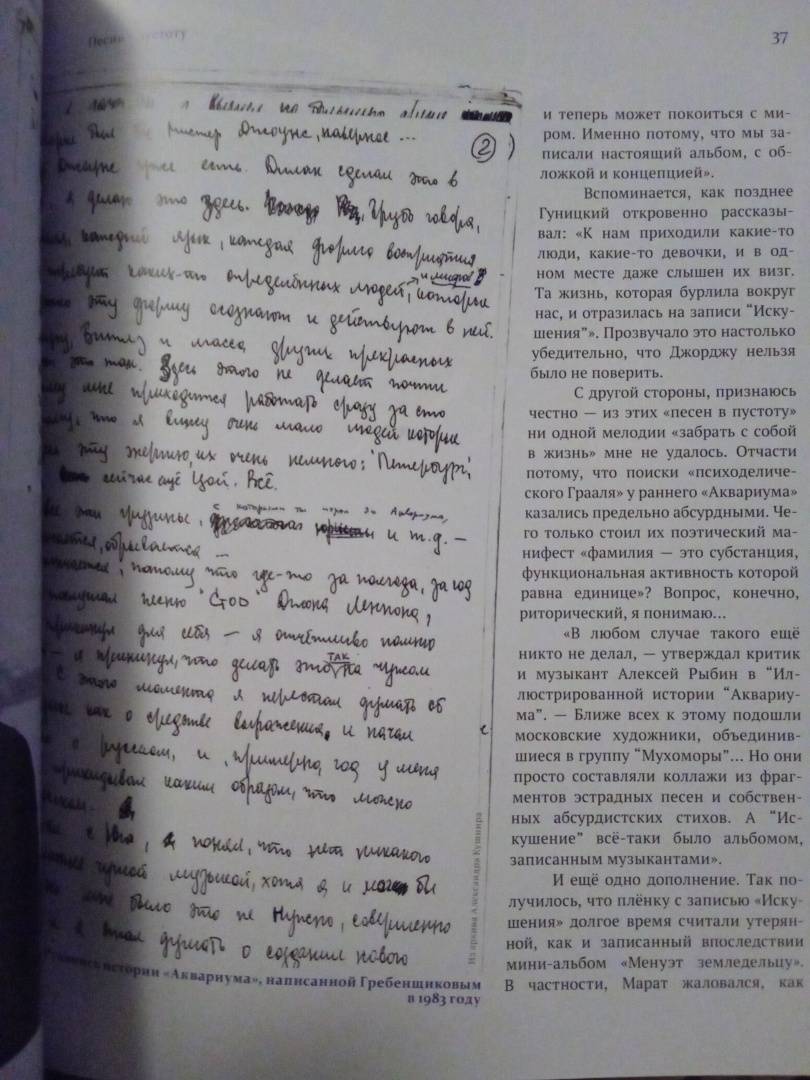 Песни в пустоту
37
на
был Мистер Джоунс, наверное ...
2
есть. Дилан сделал это в
я делаю это здесь. Грубо говоря,
каждый язык, каждая форма восприятия
каких-то определённых людей, которые
эту форму осознают и действуют в ней.
и масса других прекрасных
это так. Здесь этого не делает почти
мне приходится работать сразу за сто
что я вижу очень мало людей которые
эту энергию, их очень немного: "Петербург",
сейчас ещё Цой. Всё.
с которыми ты играл до Аквариума,
эти и т.д. –
обрывается –
потому что где-то за полгода, за год
песню "God" Джона Леннона,
прикинул для себя – я отчётливо помню
– я прикинул, что делать это ТАК на чужом
С этого момента я перестал думать об
как о средстве выражения, и начал
о русском, и, примерно, год у меня
прикидывал каким образом, что можно
с Юга, я понял, что нет никакого
чужой музыкой, хотя я и мог бы
мне было это не Нужно, совершенно
я стал думать о создании нового
Из архива Александра Кушнира
истории «Аквариума», написанной Гребенщиковым
в 1983 году
и теперь может покоиться с ми-
ром. Именно потому, что мы за-
писали настоящий альбом, с об-
ложкой и концепцией».
Вспоминается, как позднее
Гуницкий откровенно рассказы-
вал: «К нам приходили какие-то
люди, какие-то девочки, и в од-
ном месте даже слышен их визг.
Та жизнь, которая бурлила вокруг
нас, и отразилась на записи “Иску-
шения”». Прозвучало это настолько
убедительно, что Джорджу нельзя
было не поверить.
С другой стороны, признаюсь
честно — из этих «песен в пустоту»
ни одной мелодии «забрать с собой
в жизнь» мне не удалось. Отчасти
потому, что поиски «психоделиче-
ского Грааля» у раннего «Аквариума»
казались предельно абсурдными. Че-
го только стоил их поэтический ма-
нифест «фамилия — это субстанция,
функциональная активность которой
равна единице»? Вопрос, конечно,
риторический, я понимаю...
«В любом случае такого ещё
никто не делал, — утверждал критик
и музыкант Алексей Рыбин в “Ил-
люстрированной истории “Аквариу-
ма”. — Ближе всех к этому подошли
московские художники, объединив-
шиеся в группу “Мухоморы”... Но они
просто составляли коллажи из фраг-
ментов эстрадных песен и собствен-
ных абсурдистских стихов. А “Ис-
кушение” всё-таки было альбомом,
записанным музыкантами».
И ещё одно дополнение. Так по-
лучилось, что плёнку с записью «Иску-
шения» долгое время считали утерян-
ной, как и записанный впоследствии
мини-альбом «Менуэт земледельцу».
В частности, Марат жаловался, как